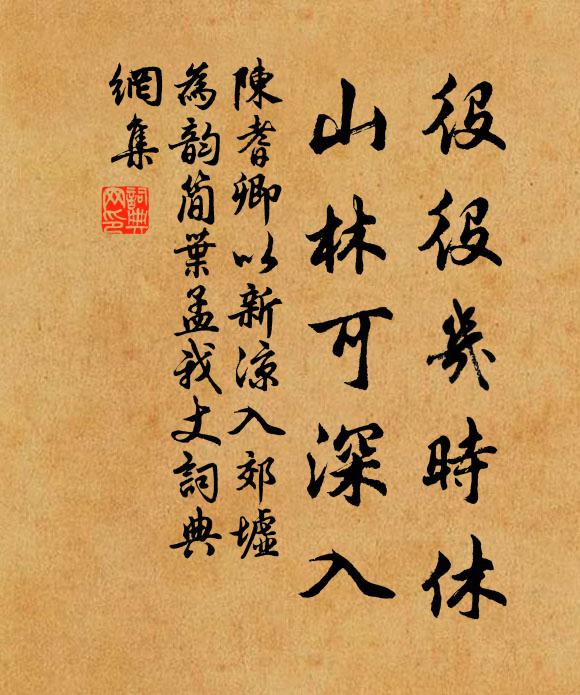 役役幾時休
山林可深入
陳耆卿以新涼入郊墟
為韵简葉孟我丈詞典
網集
詞典网印